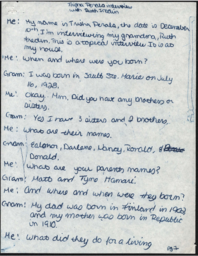 Me: My name is Trisha Perala, the date is December
10th I'm interviewing my grandma, Ruth
This is a topical interview. It is at
my house.
Me: When and where were you born?
Gram: I was born in Sault Ste. Marie on July
20, 1928.
Me: Okay. Mm, Did you have any brothers or
sisters.
Gram: Yes I have 3 sisters and 2 brothers.
Me: Whats are their names.
Gram: Darlene, Nancy, Ronald,
Donald.
Me: Whats are your parents names?
Gram: Matt and Tyne Hamari
Me: And where and when were they born?
Gram: My dad was born in Finland in
and my mother was born in Republic
in 1910.
Me: Whats did they do for a living